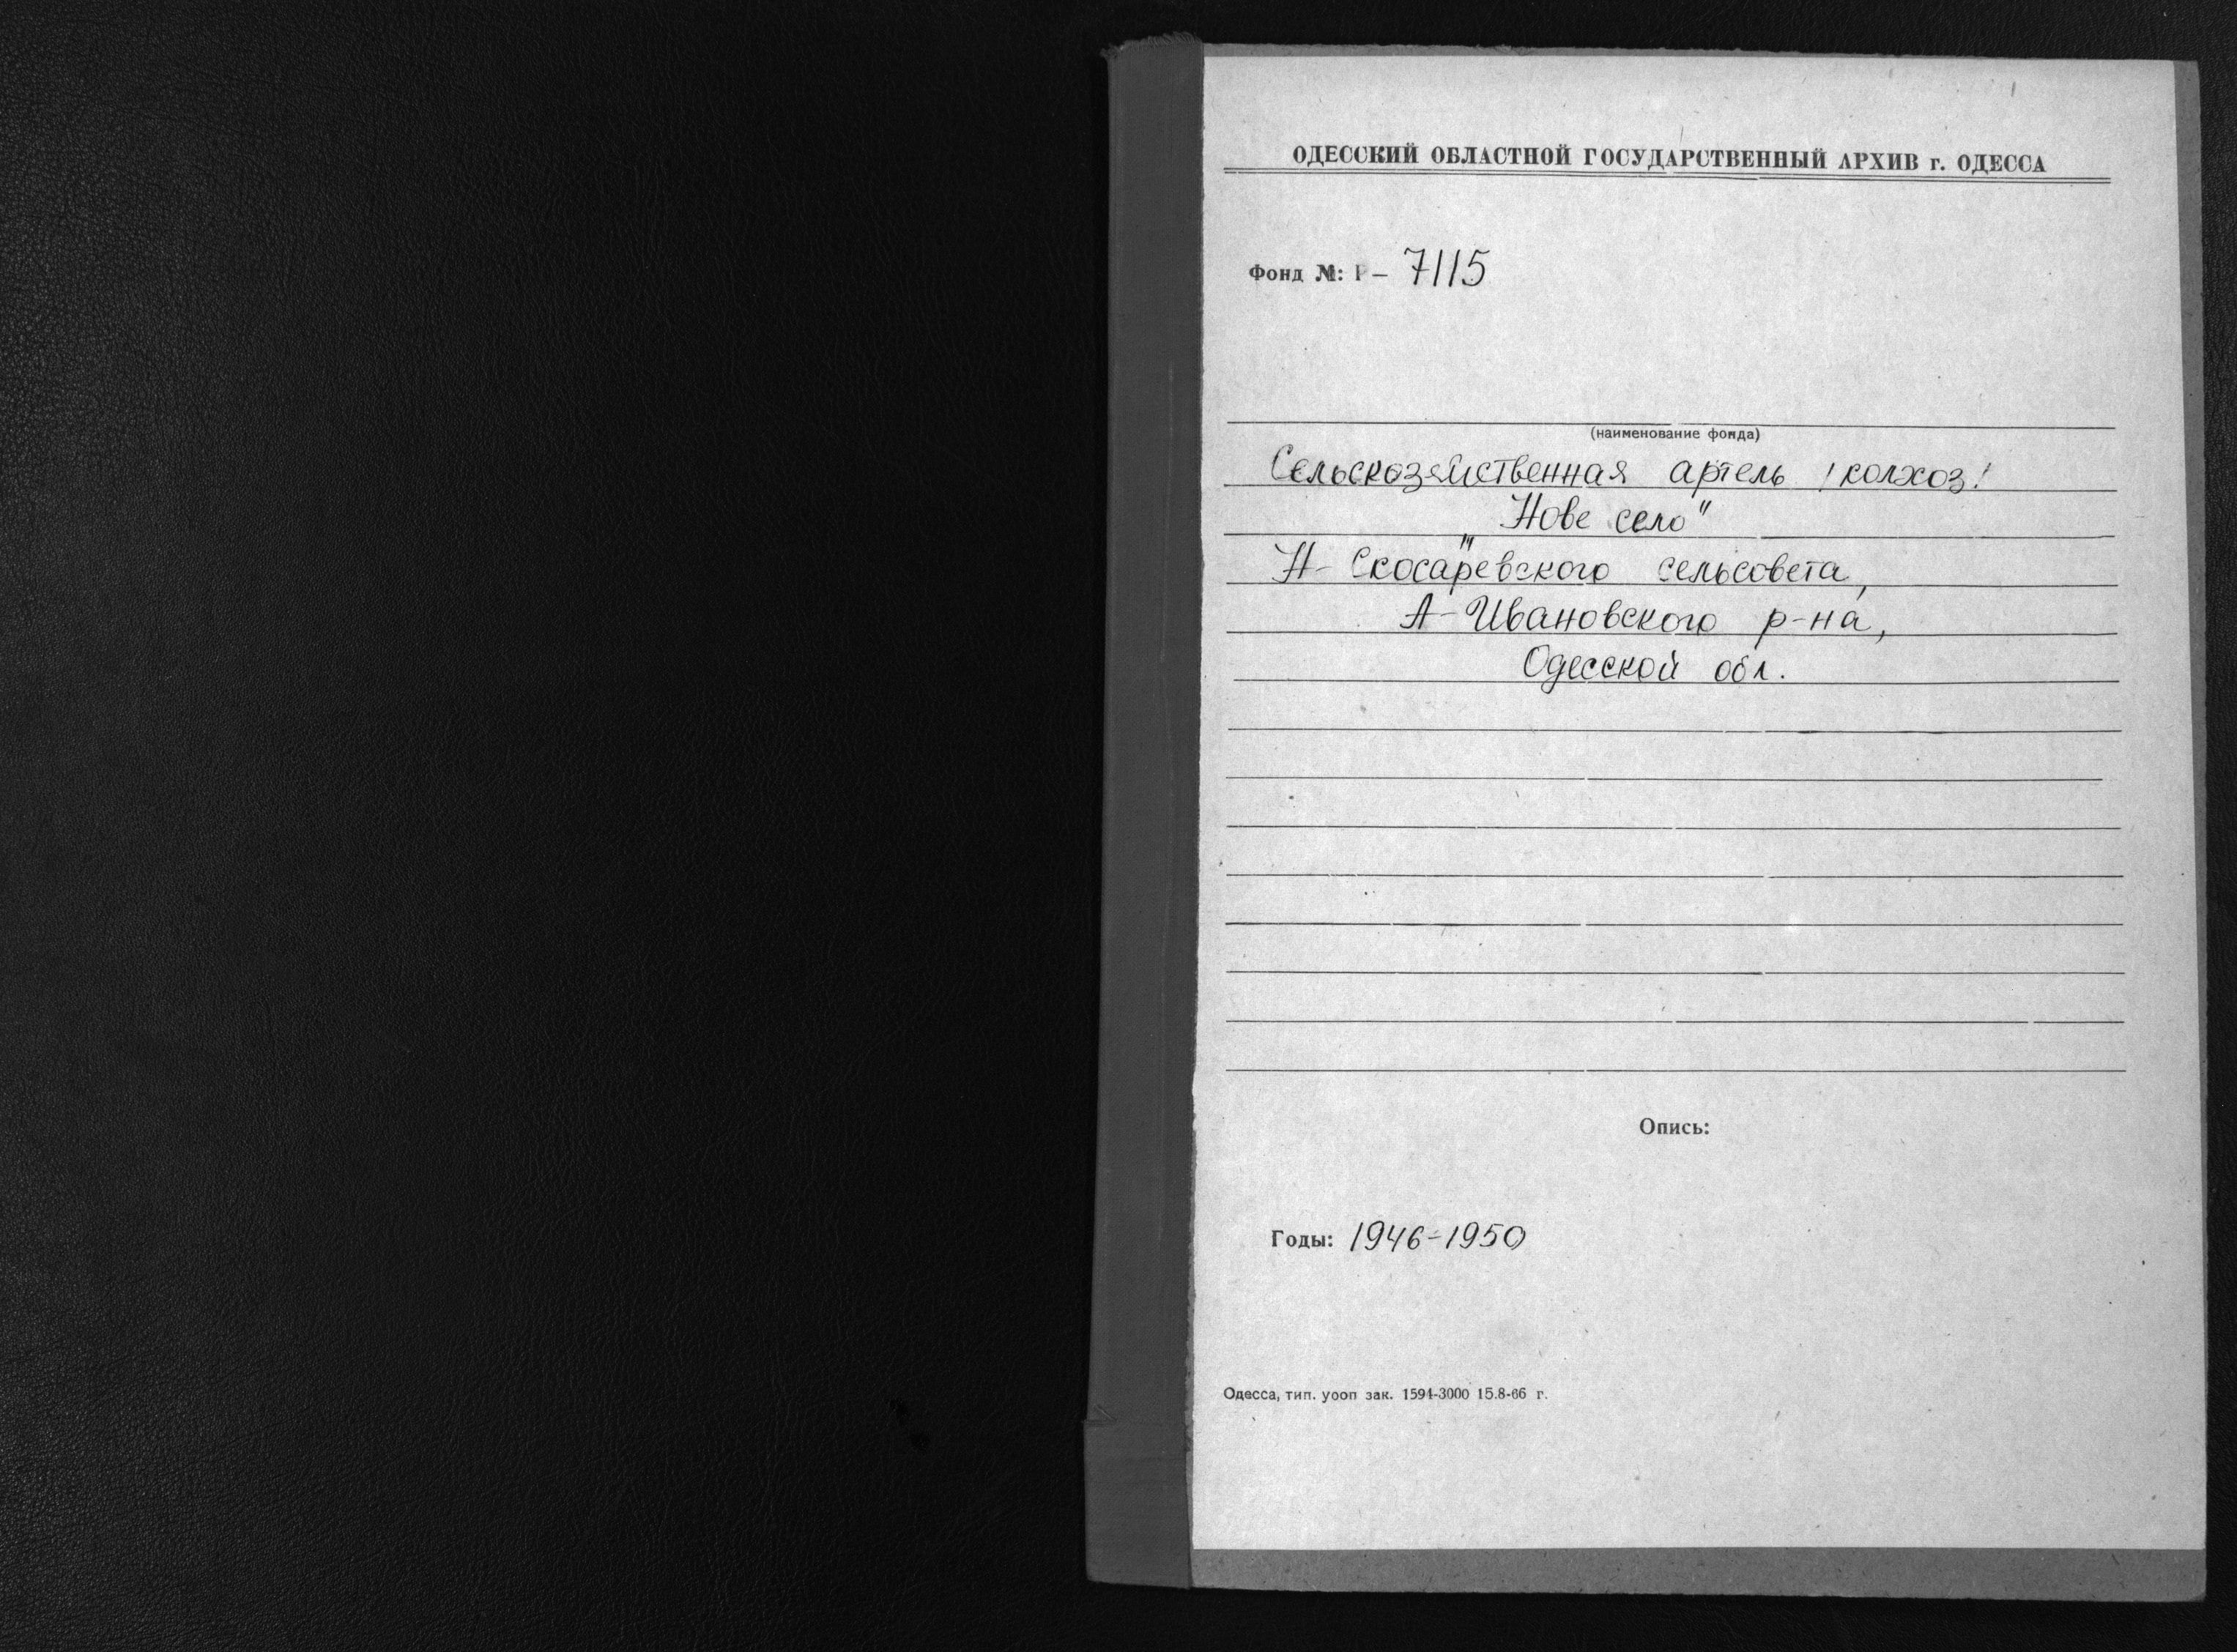 ОДЕССКИЙ ОБЛАСТНОЙ ГОСУДАРСТВЕННЫЙ АРХИВ г. ОДЕССА
Фонд №: Р- 7115
(наименование фонда)
Сельскозяйственная артель /колхоз/
"Нове село"
Н-Скосаревского сельсовета,
А-Ивановского р-на,
Одесской обл.
Опись:
Годы: 1946-1950
Одесса, тип. уооп зак. 1594-3000 15.8-66 г.